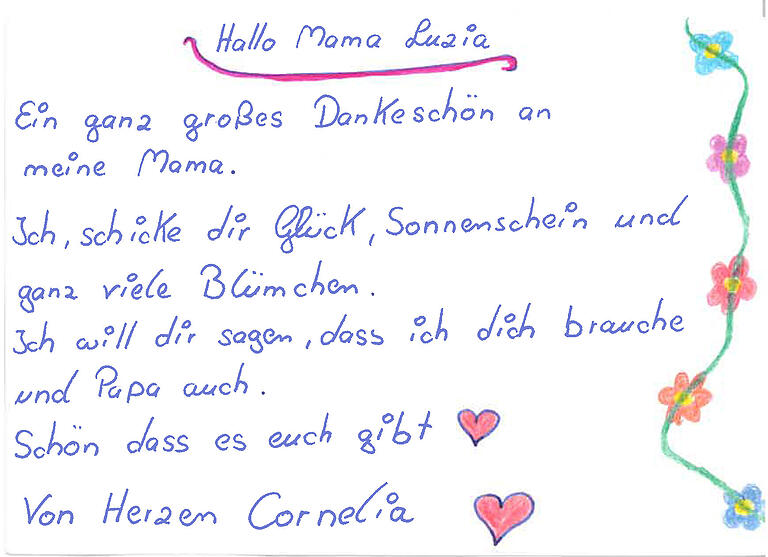 Hallo Mama Luzia
Ein ganz großes Dankeschön an
meine Mama.
Ich, schicke dir Glück, Sonnenschein und
ganz viele Blümchen.
Ich will dir sagen, dass ich dich brauche
und Papa auch.
Schön dass es euch gibt
Von Herzen Cornelia